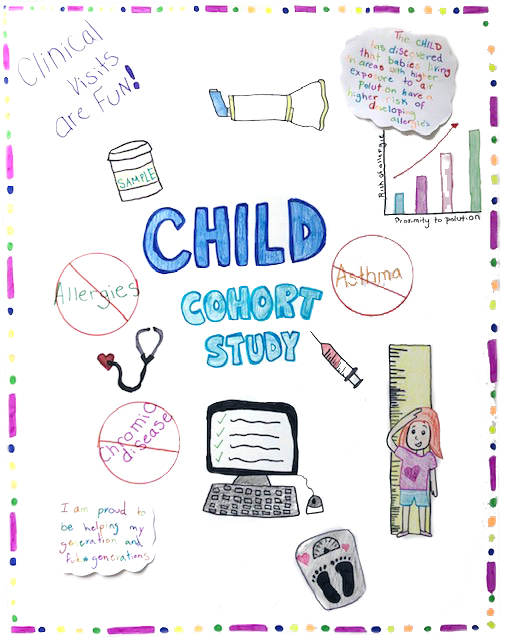 Clinical
Visits
are FUN!
The CHILD
has discovered
that babies living
in areas with higher
exposure to air
polution have a
higher risk of
developing
allergies
Risk of allergie
Proximity to polution
SAMPLE
CHILD
COHORT
STUDY
Allergies
Asthma
Chronic
disease
I am proud to
be helping my
generation and
generations